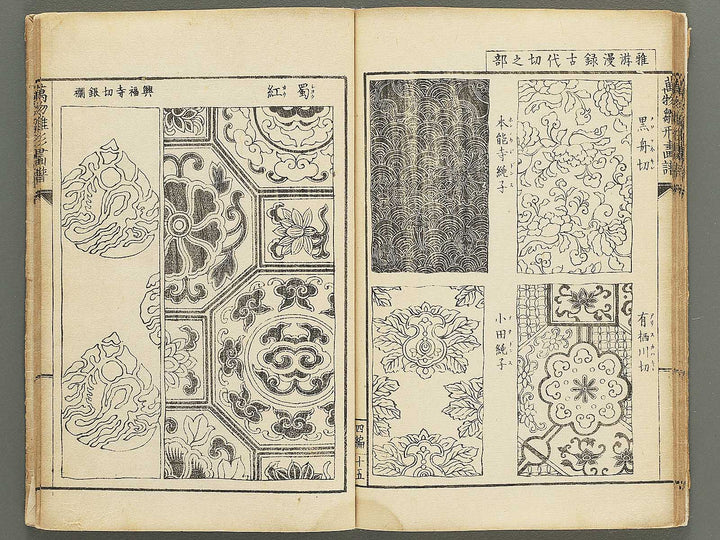 雅游漫録古代切之部
黒舟切
本能寺純子
有栖川切
小田純子
萬物雛形畫譜
四編 十五
蜀紅
興福寺切銀襴
萬物雛形畫譜